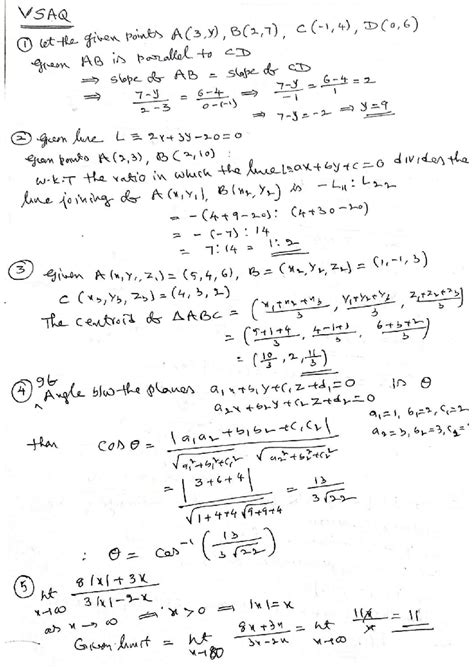 VSAQ
① Let the given points A(3,y), B(2,7), C(-1,4), D(0,6)
given AB is parallel to CD
⇒ slope of AB = slope of CD
⇒ 7-y/2-3 = 6-4/0-(-1) ⇒ 7-y/-1 = 6-4/1 = 2
⇒ 7-y = -2 ⇒ y = 9
② Given line L ≡ 2x+3y-20=0
Given points A(2,3), B(2,10) :
W.K.T the ratio in which the line L≡ax+by+c=0 divides the
line joining of A(x₁,y₁), B(x₂,y₂) is -L₁₁ : L₂₂
= -(4+9-20) : (4+30-20)
= -(-7) : 14
= 7:14 = 1:2
③ Given A(x₁,y₁,z₁) = (5,4,6), B = (x₂,y₂,z₂) = (1,-1,3)
C(x₃,y₃,z₃) = (4,3,2)
The centroid of ΔABC = (x₁+x₂+x₃/3, y₁+y₂+y₃/3, z₁+z₂+z₃/3)
= (5+1+4/3, 4-1+3/3, 6+3+2/3)
= (10/3, 2, 11/3)
④ If Angle b/w the planes a₁x+b₁y+c₁z+d₁=0 is θ
a₂x+b₂y+c₂z+d₂=0
a₁=1, b₁=2, c₁=2
a₂=3, b₂=3, c₂=
then cosθ = |a₁a₂+b₁b₂+c₁c₂| / √a₁²+b₁²+c₁² √a₂²+b₂²+c₂²
= |3+6+4| / √1+4+4 √9+9+4 = 13/3√22
∴ θ = cos⁻¹(13/3√22)
⑤ Lt x→∞ 8|x|+3x / 3|x|-2x
as x→∞ ⇒ x>0 ⇒ |x|=x
Given limit = Lt x→∞ 8x+3x / 3x-2x = Lt x→∞ 11x/x = 11